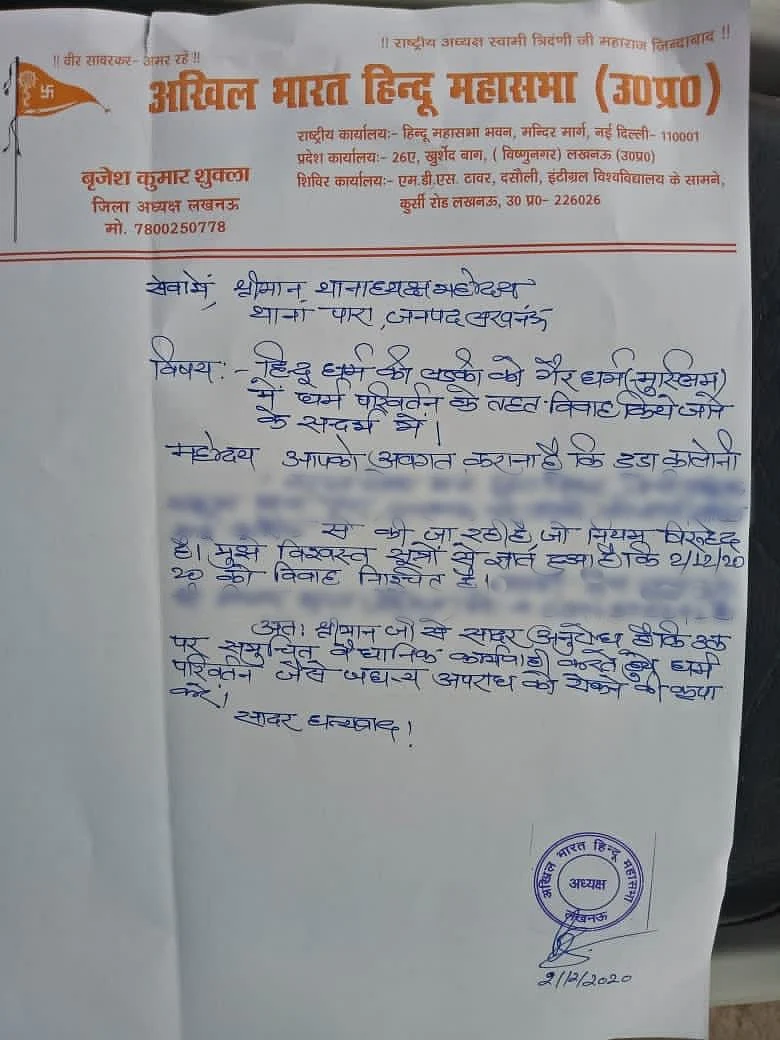 !! राष्ट्रीय अध्यक्ष स्वामी त्रिदण्डी जी महाराज जिन्दाबाद !!
!! वीर सावरकर- अमर रहें !!
अखिल भारत हिन्दू महासभा (उ0प्र0)
राष्ट्रीय कार्यालयः- हिन्दू महासभा भवन, मन्दिर मार्ग, नई दिल्ली- 110001
प्रदेश कार्यालयः- 26ए, खुर्शेद बाग, ( विष्णुनगर) लखनऊ (उ0प्र0)
शिविर कार्यालयः- एम.डी.एस. टावर, दसौली, इंटीग्रल विश्वविद्यालय के सामने,
कुर्सी रोड लखनऊ, उ0 प्र0- 226026
बृजेश कुमार शुक्ला
जिला अध्यक्ष लखनऊ
मो. 7800250778
सेवा में, श्रीमान थानाध्यक्ष महोदय
थाना पारा, जनपद लखनऊ
विषय :- हिन्दू धर्म की लड़की को गैर धर्म (मुस्लिम)
में धर्म परिवर्तन के तहत विवाह किये जाने
के सन्दर्भ में।
महोदय आपको अवगत कराना है कि डूडा कालोनी
से की जा रही है, जो नियम विरुद्ध
है। मुझे विश्वस्त सूत्रों से ज्ञात हुआ है कि 2/12/20
20 को विवाह निश्चित है।
अतः श्रीमान जी से सादर अनुरोध है कि उक्त
पर समुचित वैधानिक कार्यवाही करते हुये धर्म
परिवर्तन जैसे जघन्य अपराध को रोकने की कृपा
करें।
सादर धन्यवाद !
अखिल भारत हिन्दू महासभा
अध्यक्ष
लखनऊ
2/12/2020